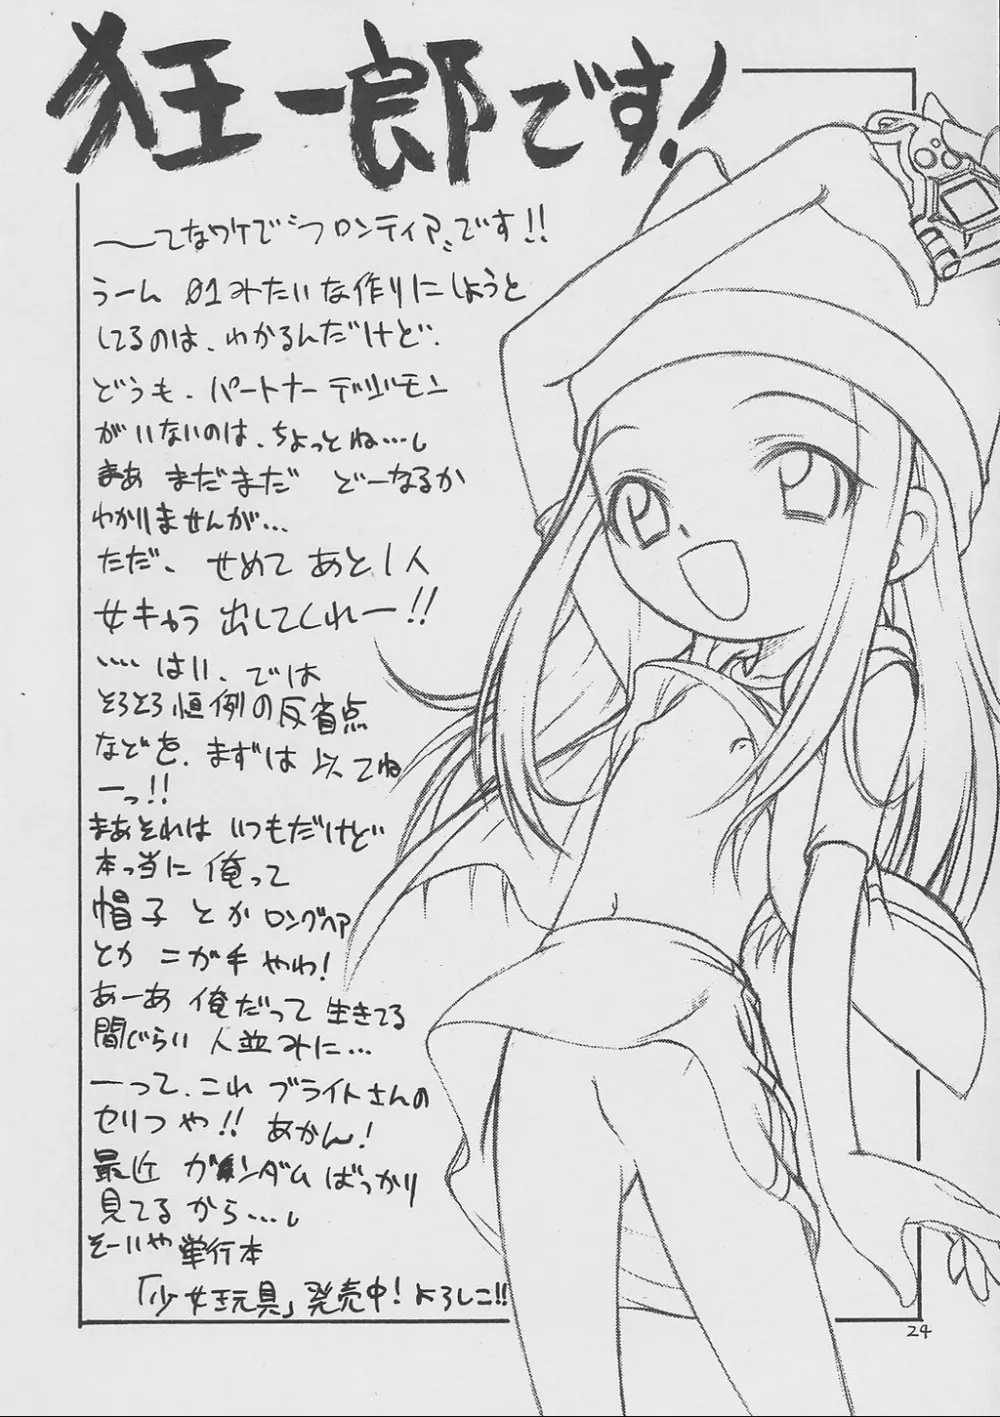 狂一郎です!
〜てなワケで“フロンティア”です!!
うーん 01みたいな作りにしようと
してるのは、わかるんだけど、
どうも、パートナーデジモン
がいないのは、ちょっとね…。
まあ まだまだ どーなるか
わかりませんが…
ただ、せめて あと1人
女キャラ 出してくれー!!
…はい、では
そろそろ恒例の反省点
などを、まずは 以てね
ーっ!!
まあそれは いつもだけど
本っ当に 俺って
帽子 とか ロングヘア
とか ニガ手 やわ!
あーあ 俺だって 生きてる
間じらい 人並みに…
ーって、これ ブライトさんの
セリフや!! あかん!
最近 ガンダム ばっかり
見てる から…。
そーいや 単行本
「少女玩具」発売中! よろしこ!!
24